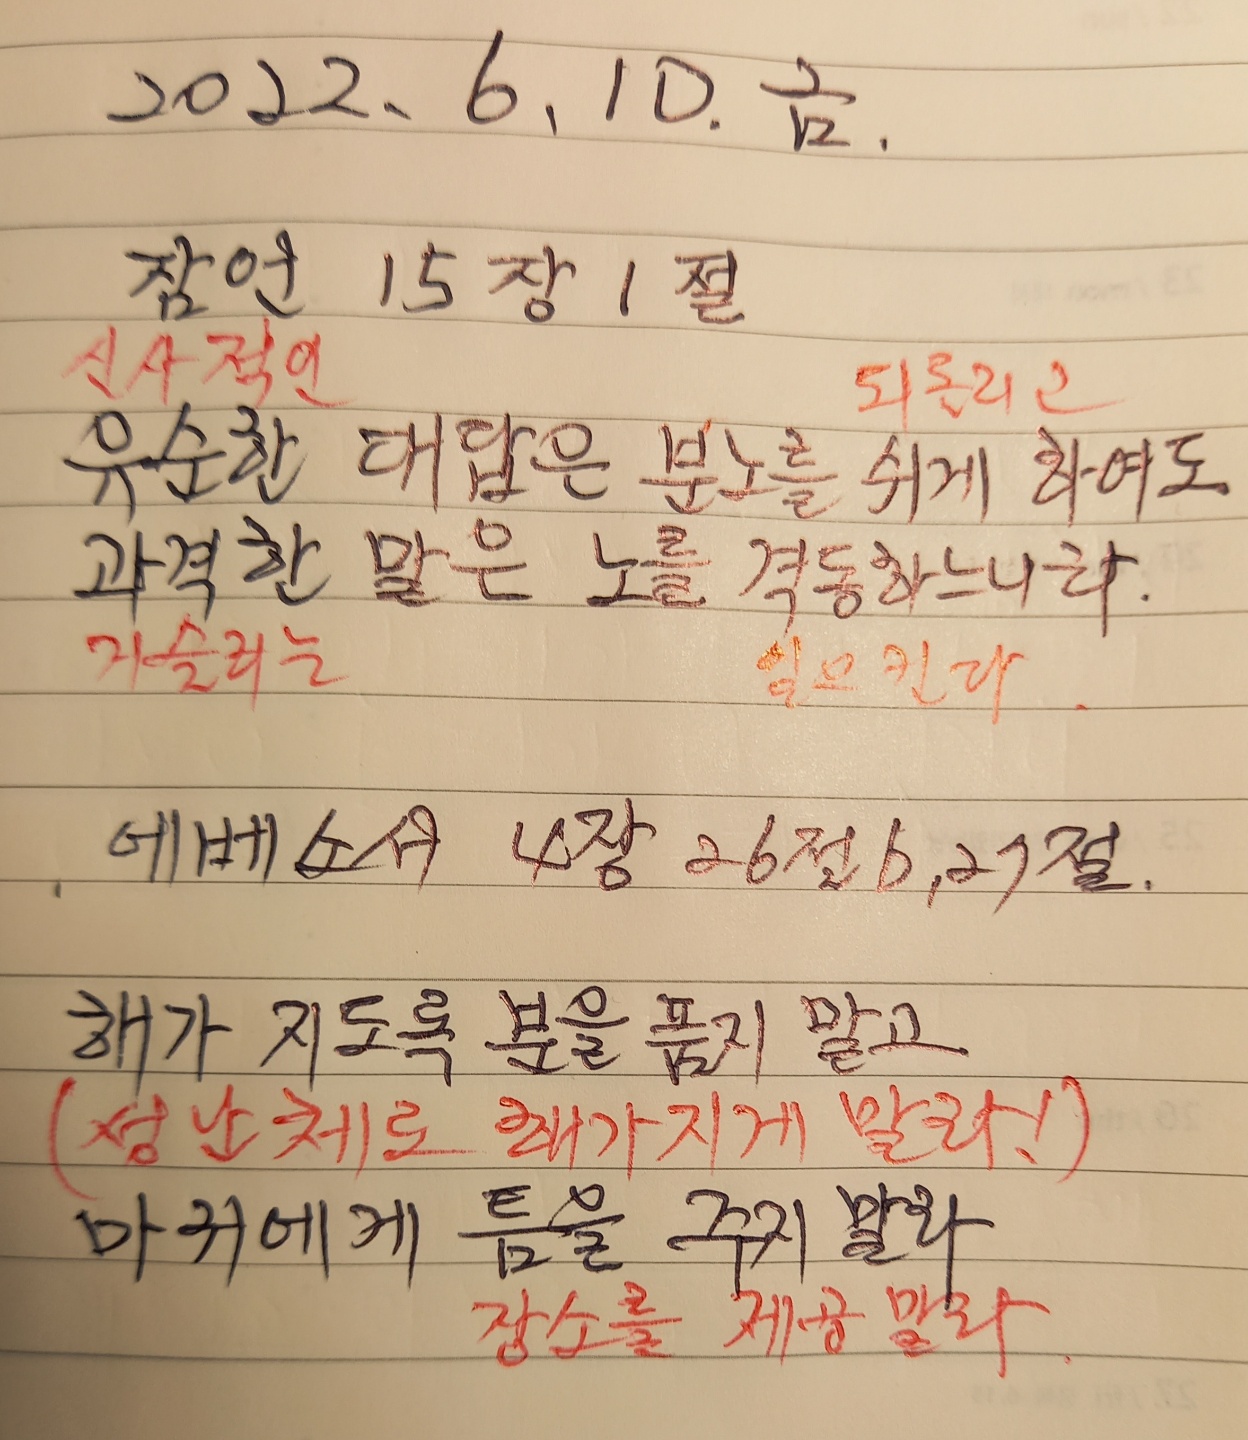 2022. 6. 10. 금.
잠언 15장 1절
신사적인 되돌리고
유순한 대답은 분노를 쉬게 하여도
과격한 말은 노를 격동하느니라.
거슬리는 일으킨다.
에베소서 4장 26절b, 27절.
해가 지도록 분을 품지 말고
(성난 체로 해가 지게 말라!)
마귀에게 틈을 주지 말라
장소를 제공 말라.